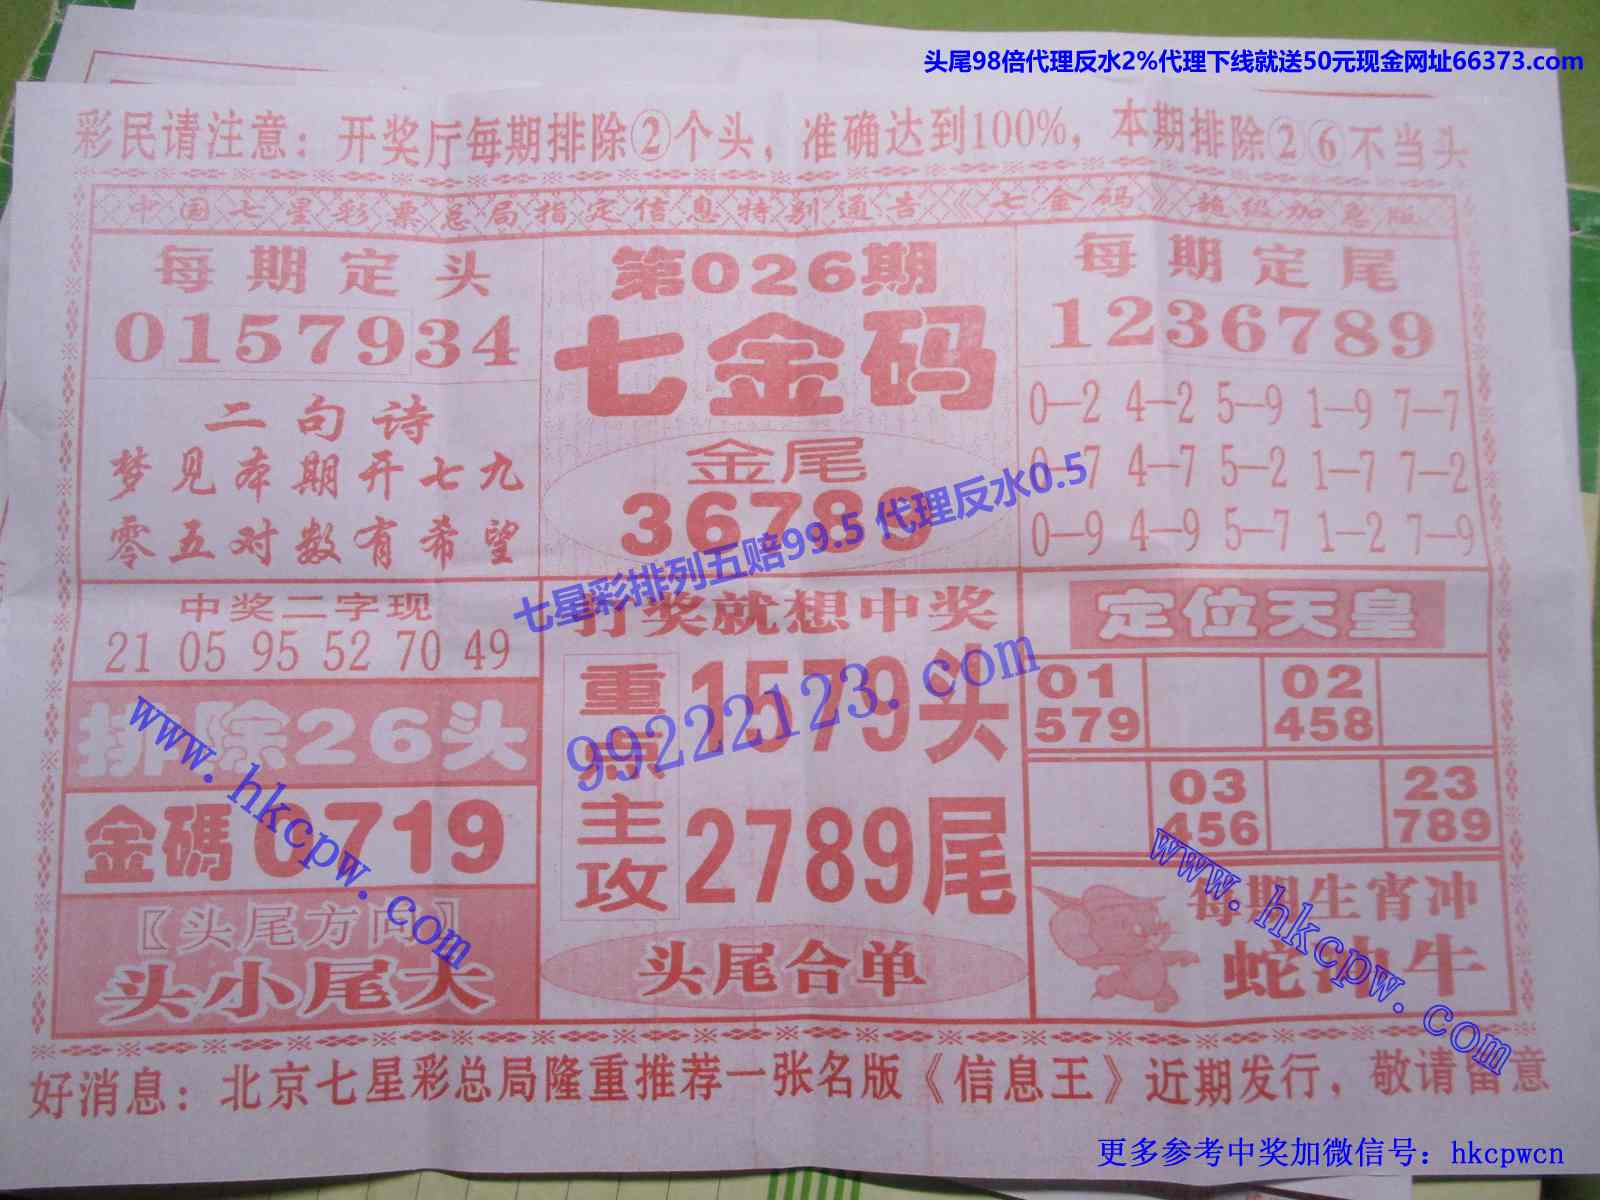 头尾98倍代理反水2%代理下线就送50元现金网址66373.com
彩民请注意：开奖厅每期排除②个头，准确达到100%，本期排除②⑥不当头
中国七星彩票总局指定信息特别通告《七金码》超级加急版
每期定头
0157934
二句诗
梦见本期开七九
零五对数有希望
第026期
七金码
金尾
36789
每期定尾
1236789
0—2 4—2 5—9 1—9 7—7
0—7 4—7 5—2 1—7 7—2
0—9 4—9 5—7 1—2 7—9
七星彩排列五赔99.5 代理反水0.5
99222123.com
中奖二字现
21 05 95 52 70 49
排除26头
金碼0719
〖头尾方向〗
头小尾大
打奖就想中奖
重点主攻
1579头
2789尾
头尾合单
定位天皇
01 02
579 458
03 23
456 789
每期生宵冲
蛇冲牛
www.hkcpw.com
www.hkcpw.com
好消息：北京七星彩总局隆重推荐一张名版《信息王》近期发行，敬请留意
更多参考中奖加微信号：hkcpwcn